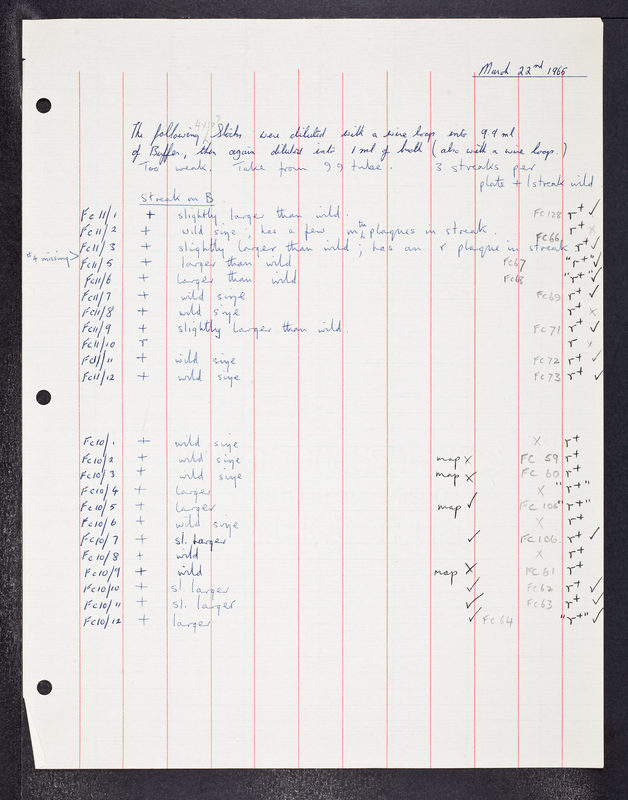 March 22nd 1965
4 x 10⁹
The following Stocks were diluted with a wire loop into 9.9 ml
of Buffer, then again diluted into 1 ml of broth (also with a wire loop.)
Too weak. Take from 99 tube. 3 streaks per
plate + 1 streak wild
Streak on B
Fc 11/1 + slightly larger than wild. FC128 r+ ✓
Fc 11/2 + wild size ; has a few plaques in streak. FC66 r+ x
Fc11/3 + slightly larger than wild ; has an r plaque in streak r+ ✓
#4 missing >
Fc11/5 + larger than wild FC67 "r+" ✓
Fc11/6 + larger than wild FC68 "r+" ✓
Fc11/7 + wild size FC69 r+ ✓
Fc11/8 + wild size r+ x
Fc11/9 + slightly larger than wild. FC71 r+ ✓
Fc11/10 r r x
Fc11/11 + wild size FC72 r+ ✓
Fc11/12 + wild size FC73 r+ ✓
Fc10/1 + wild size X r+
Fc10/2 + wild size map x FC 59 r+
Fc10/3 + wild size map x FC 60 r+
Fc10/4 + larger X "r+"
Fc10/5 + larger map ✓ FC 105 "r+"
Fc10/6 + wild size X r+
Fc10/7 + sl. larger ✓ FC106. r+ ✓
Fc10/8 + wild X r+
Fc10/9 + wild map X FC61 r+
Fc10/10 + sl. larger ✓ FC62 r+ ✓
Fc10/11 + sl. larger ✓ FC63 r+ ✓
Fc10/12 + larger ✓ FC64 "r+" ✓